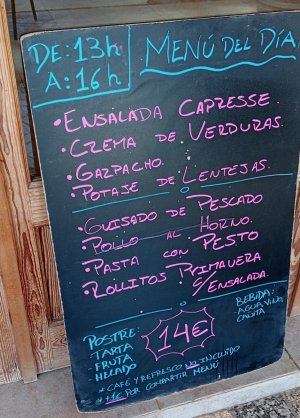 DE: 13h
A: 16h
MENÚ DEL DÍA
• ENSALADA CAPRESSE.
• CREMA DE VERDURAS.
• GAZPACHO.
• POTAJE DE LENTEJAS.
• GUISADO DE PESCADO
• POLLO AL HORNO.
• PASTA CON PESTO
• ROLLITOS PRIMAVERA
C/ENSALADA.
POSTRE:
TARTA
FRUTA
HELADO
14€
BEBIDA:
AGUA, VINO,
CAÑITA
* CAFÉ Y REFRESCO NO INCLUIDO
* +1€ POR COMPARTIR MENÚ